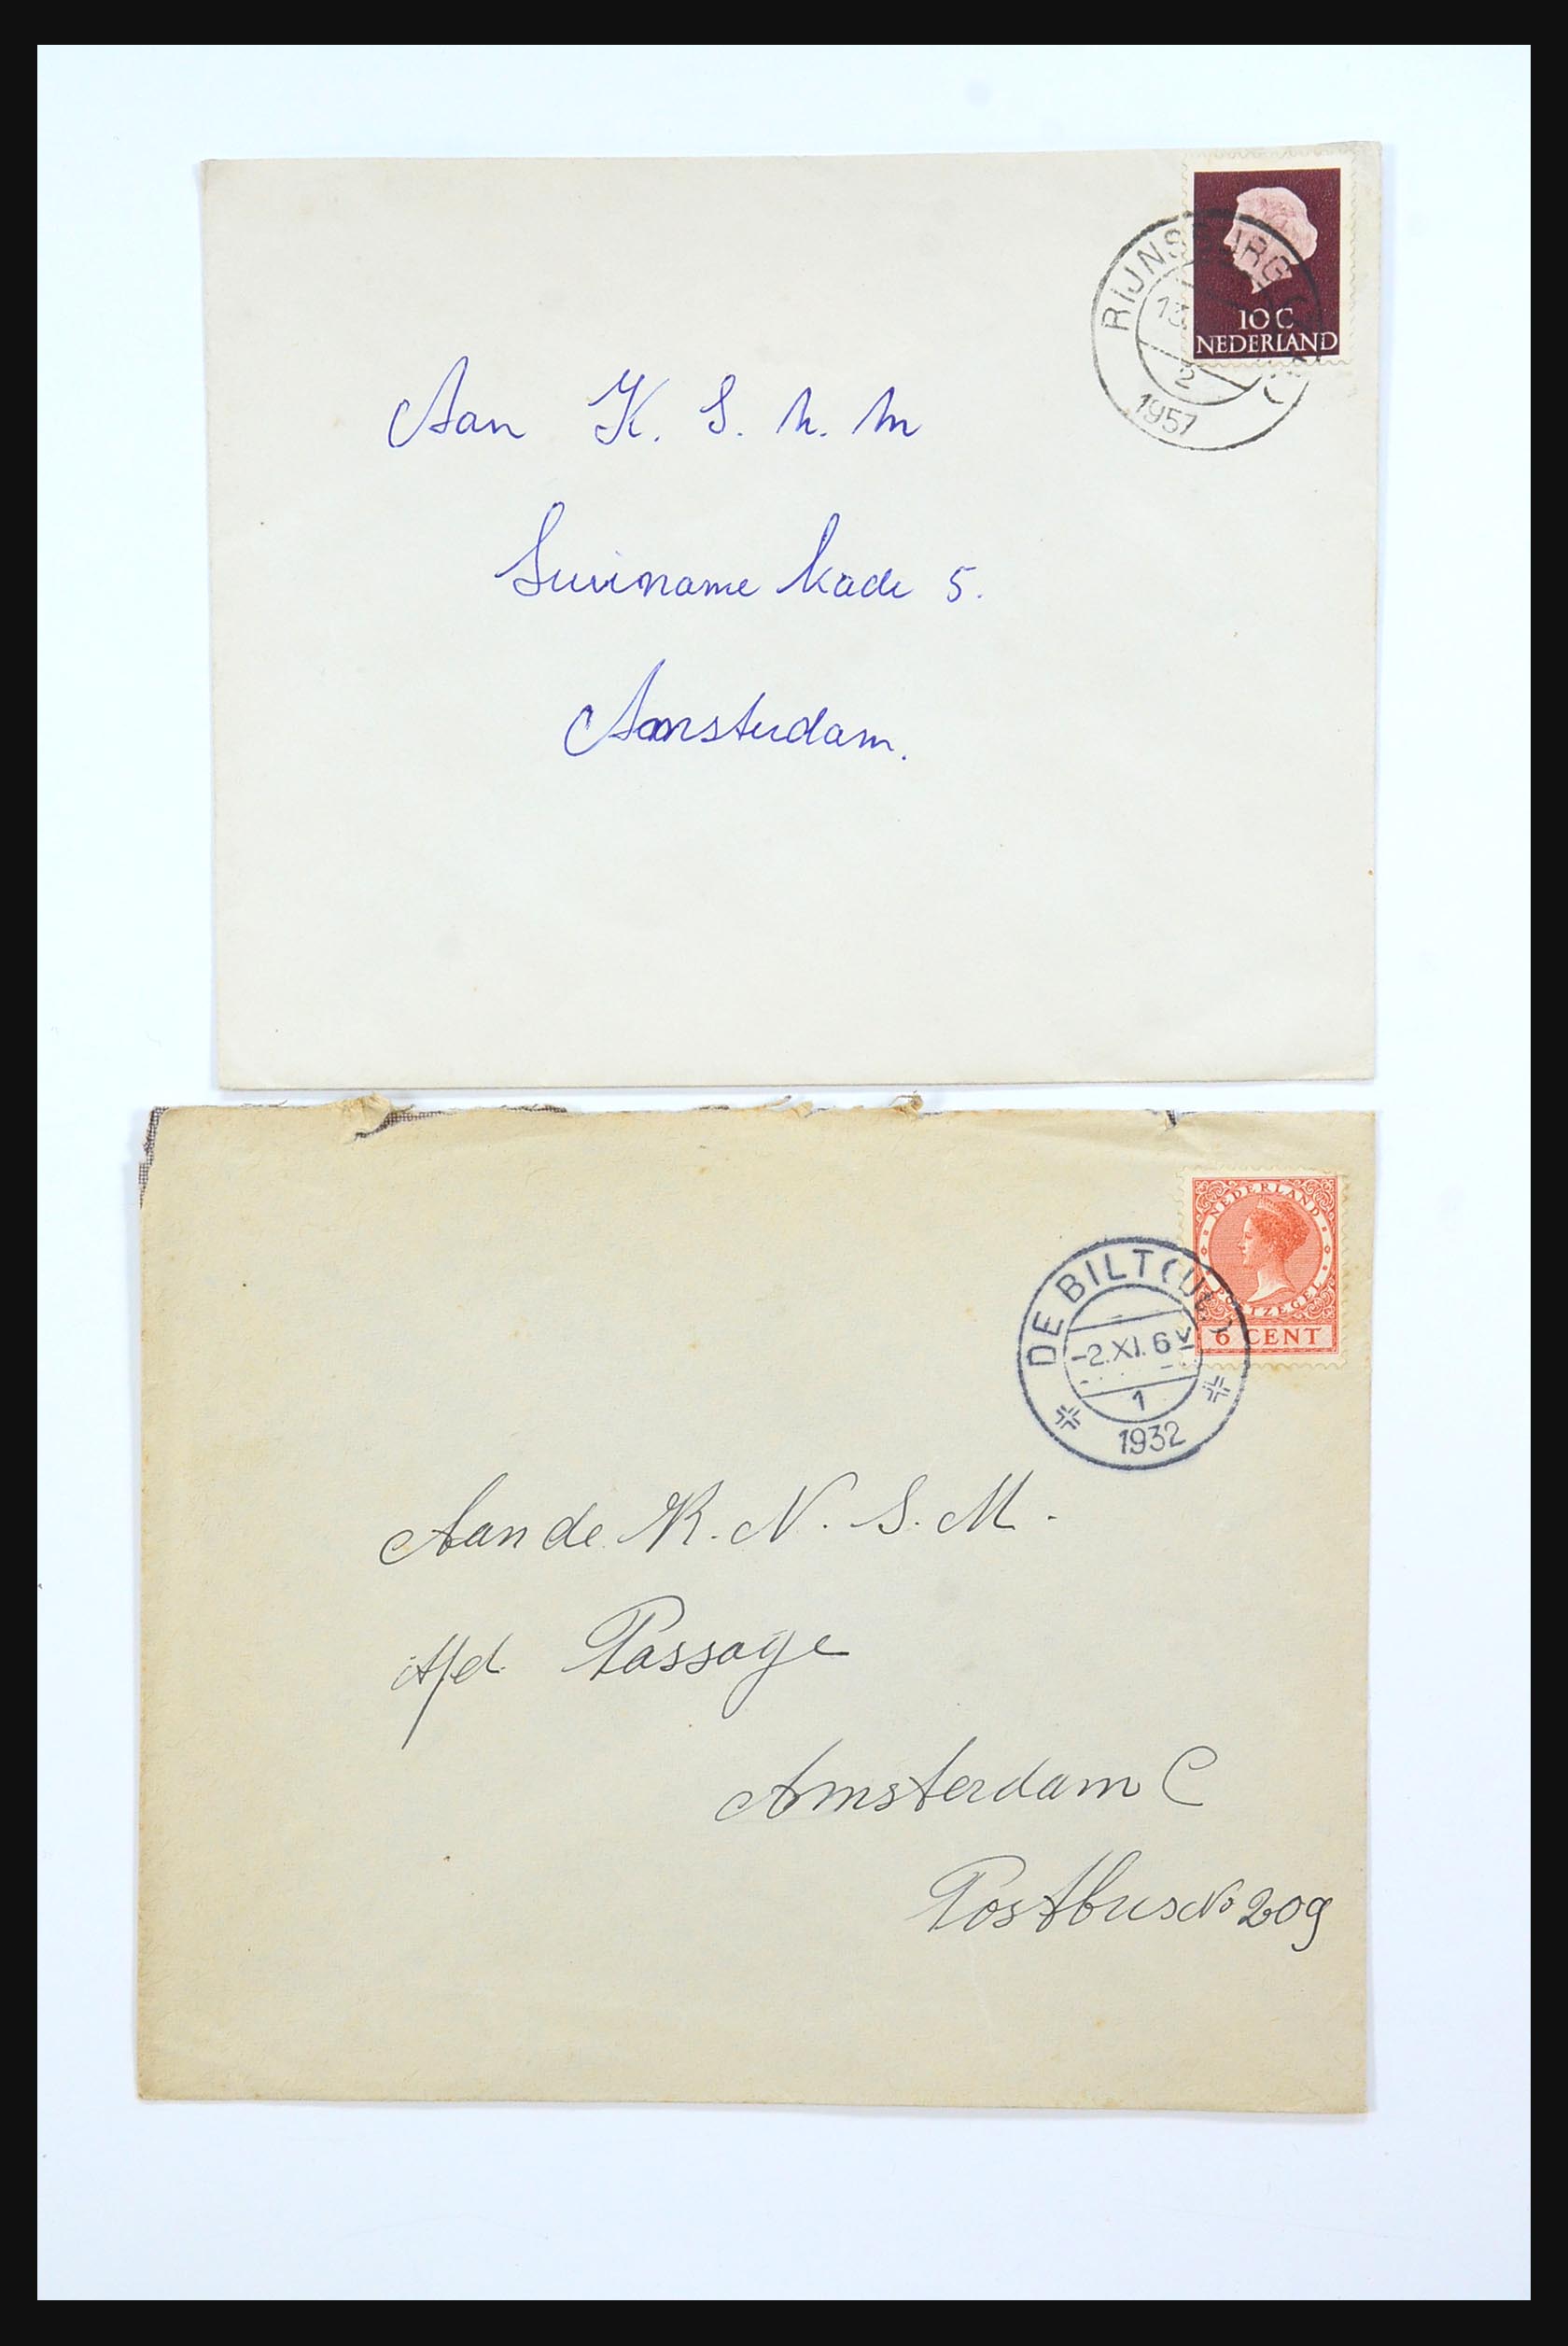 10 C
NEDERLAND
RIJNSBURG
13
2
1957
Aan K. S. N. M
Suriname kade 5.
Amsterdam.
NEDERLAND
POSTZEGEL
6 CENT
DE BILT (Ut.)
-2.XI.6V
1
1932
Aan de K. N. S. M.
Afd. Passage
Amsterdam C
Postbus No 209